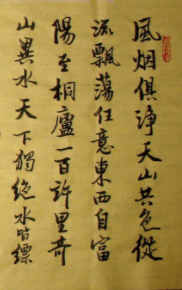 風烟俱淨天山共色從
流飄蕩任意東西自富
陽至桐廬一百許里奇
山異水天下獨絶水皆縹